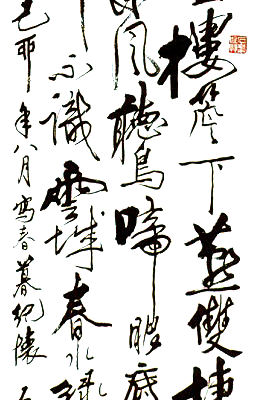 樓簷下燕雙棲
風聽鳥啼底
不識雲城春水綠
己卯年八月寫春暮紀懷